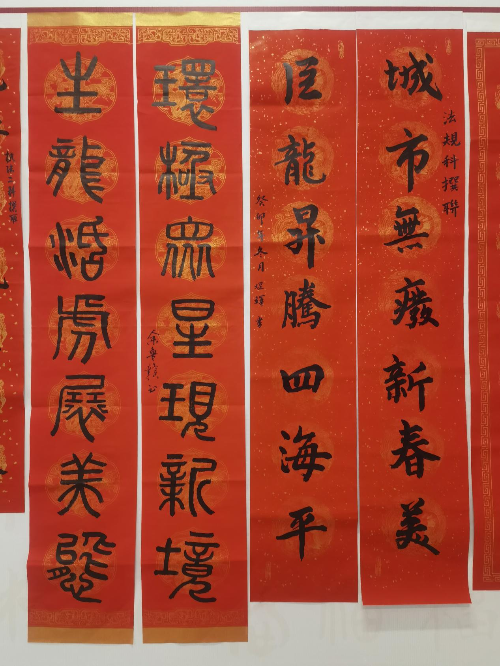 法規科撰聯
城市無廢新春美
巨龍昇騰四海平
癸卯年冬月
書
環極眾星現新境
生龍活虎展美